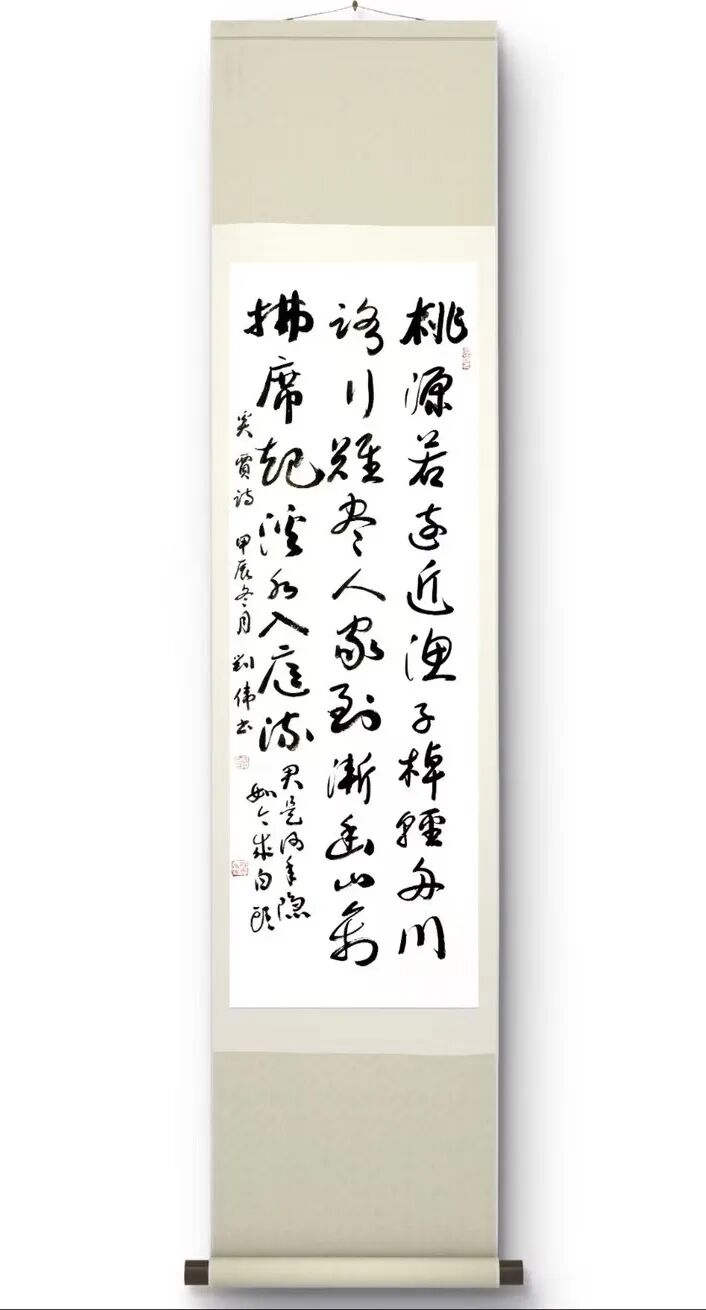 桃源若遠近漁子棹輕舟川
路行難盡人家到漸幽山禽
拂席起溪水入庭流
君是何年隱
如今成白頭
奚賈詩 甲辰冬月 劉偉書